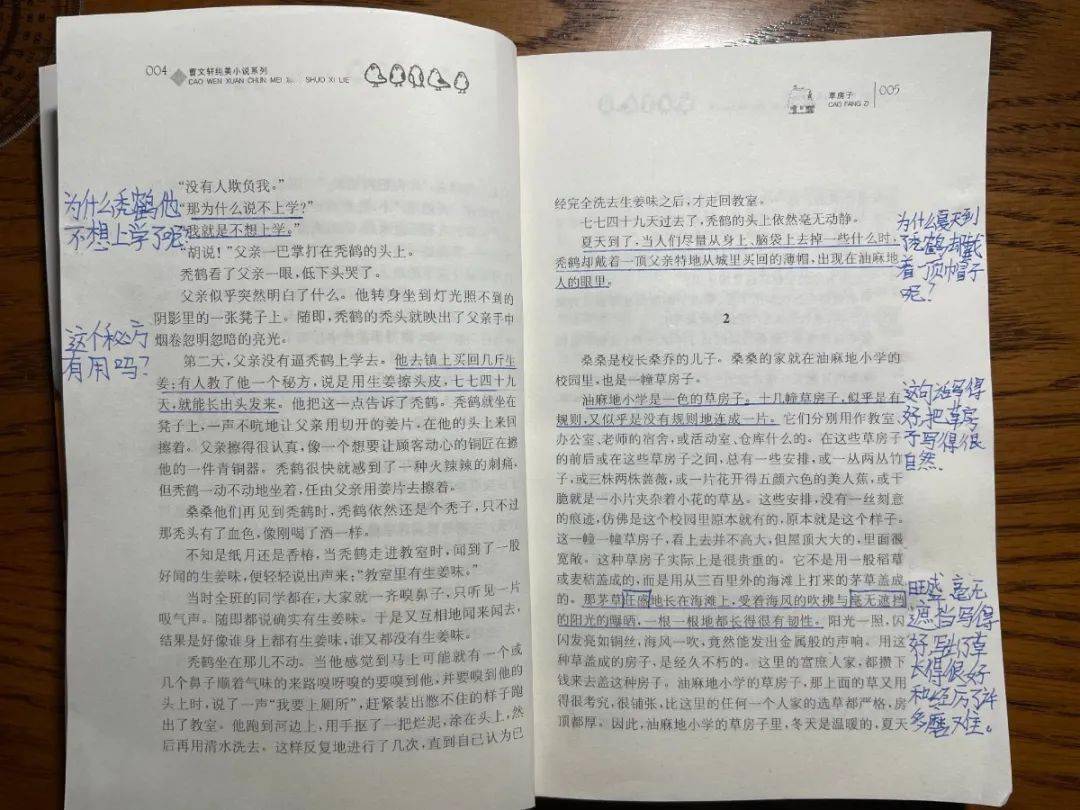 004 曹文轩纯美小说系列
CAO WEN XUAN CHUN MEI XIAO SHUO XI LIE
“没有人欺负我。”
“那为什么说不上学?”
“我就是不想上学。”
“胡说!”父亲一巴掌打在秃鹤的头上。
秃鹤看了父亲一眼,低下头哭了。
父亲似乎突然明白了什么。他转身坐到灯光照不到的
阴影里的一张凳子上。随即,秃鹤的秃头就映出了父亲手中
烟卷忽明忽暗的亮光。
第二天,父亲没有逼秃鹤上学去。他去镇上买回几斤生
姜:有人教了他一个秘方,说是用生姜擦头皮,七七四十九
天,就能长出头发来。他把这一点告诉了秃鹤。秃鹤就坐在
凳子上,一声不吭地让父亲用切开的姜片,在他的头上来回
擦着。父亲擦得很认真,像一个想要让顾客动心的铜匠在擦
他的一件青铜器。秃鹤很快就感到了一种火辣辣的刺痛,
但秃鹤一动不动地坐着,任由父亲用姜片去擦着。
桑桑他们再见到秃鹤时,秃鹤依然还是个秃子,只不过
那秃头有了血色,像刚喝了酒一样。
不知是纸月还是香椿,当秃鹤走进教室时,闻到了一股
好闻的生姜味,便轻轻说出声来:“教室里有生姜味。”
当时全班的同学都在,大家就一齐嗅鼻子,只听见一片
吸气声。随即都说确实有生姜味。于是又互相地闻来闻去,
结果是好像谁身上都有生姜味,谁又都没有生姜味。
秃鹤坐在那儿不动。当他感觉到马上可能就有一个或
几个鼻子顺着气味的来路嗅呀嗅的要嗅到他,并要嗅到他的
头上时,说了一声“我要上厕所”,赶紧装出憋不住的样子跑
出了教室。他跑到河边上,用手抠了一把烂泥,涂在头上,然
后再用清水洗去。这样反复地进行了几次,直到自己认为已
为什么秃鹤他
不想上学了呢?
这个秘方
有用吗?
草房子 005
CAO FANG ZI
经完全洗去生姜味之后,才走回教室。
七七四十九天过去了,秃鹤的头上依然毫无动静。
夏天到了,当人们尽量从身上、脑袋上去掉一些什么时,
秃鹤却戴着一顶父亲特地从城里买回的薄帽,出现在油麻地
人的眼里。
2
桑桑是校长桑乔的儿子。桑桑的家就在油麻地小学的
校园里,也是一幢草房子。
油麻地小学是一色的草房子。十几幢草房子,似乎是有
规则,又似乎是没有规则地连成一片。它们分别用作教室、
办公室、老师的宿舍,或活动室、仓库什么的。在这些草房子
的前后或在这些草房子之间,总有一些安排,或一丛两丛竹
子,或三株两株蔷薇,或一片花开得五颜六色的美人蕉,或干
脆就是一小片夹杂着小花的草丛。这些安排,没有一丝刻意
的痕迹,仿佛是这个校园里原本就有的,原本就是这个样子。
这一幢一幢草房,看上去并不高大,但屋顶大大的,里面很
宽敞。这种草房子实际上是很贵重的。它不是用一般稻草
或麦秸盖成的,而是用从三百里外的海滩上打来的茅草盖成
的。那茅草旺盛地长在海滩上,受着海风的吹拂与毫无遮挡
的阳光的曝晒,一根一根地都长得很有韧性。阳光一照,闪
闪发亮如铜丝,海风一吹,竟然能发出金属般的声响。用这
种草盖成的房子,是经久不朽的。这里的富庶人家,都攒下
钱来去盖这种房子。油麻地小学的草房子,那上面的草又用
得很考究,很铺张,比这里的任何一个人家的选草都严格,房
顶都厚。因此,油麻地小学的草房子里,冬天是温暖的,夏天
为什么夏天到
了秃鹤却戴
着了顶巾帽子
呢?
这句话写得
好,把草房
子写得很
自然.
旺盛,毫无
遮挡写得
好,写出了草
长得很好
和经历了许
多磨难。